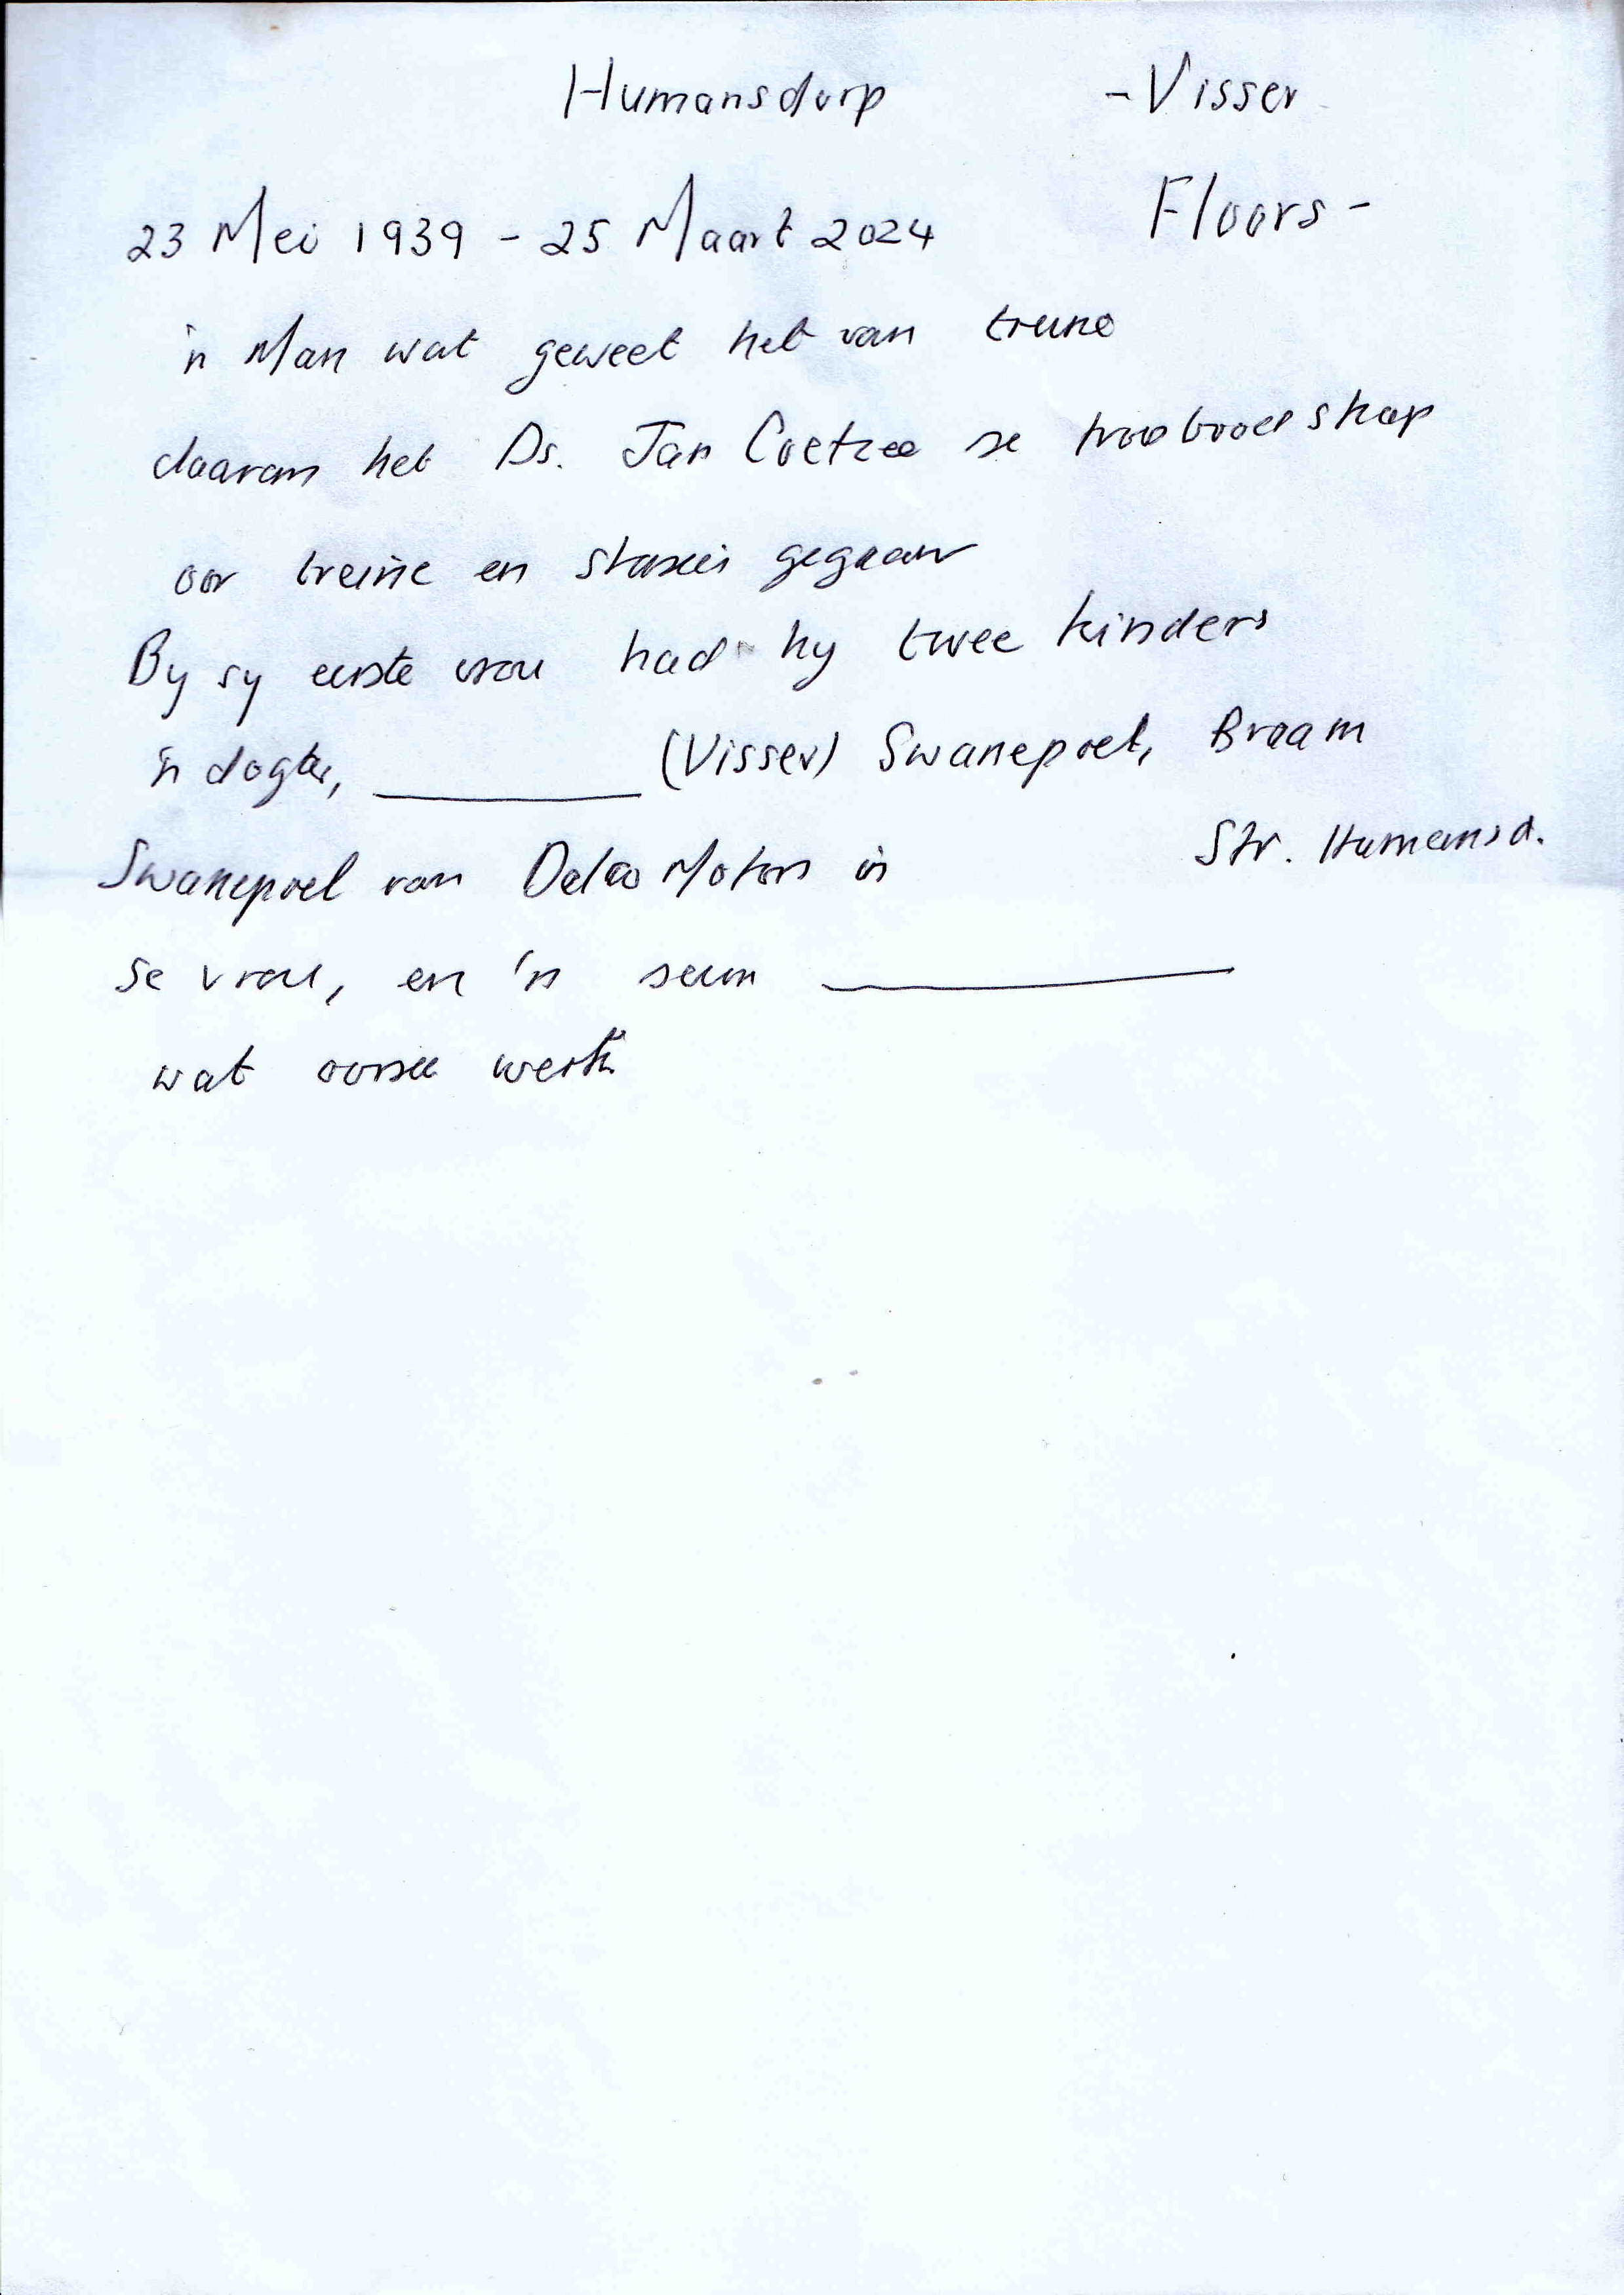 Humansdorp -Visser
Floors-
23 Mei 1939 - 25 Maart 2024
'n Man wat geweet het van treine
daarom het Ds. Jan Coetzee se troosboodskap
oor treine en stasies gegaan
By sy eerste vrou had hy twee kinders
'n dogter, __________ (Visser) Swanepoel, Braam
Swanepoel van Delco Motors in Str. Humansd.
se vrou, en 'n seun __________
wat oorsee werk